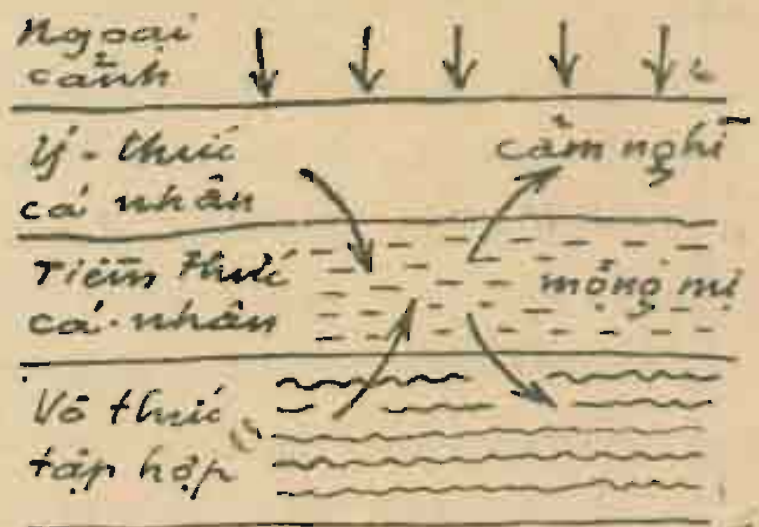 Ngoại
cảnh
Ý-thức
cá nhân
cảm nghĩ
Tiềm thức
cá-nhân
mộng mị
Vô thức
tập hợp